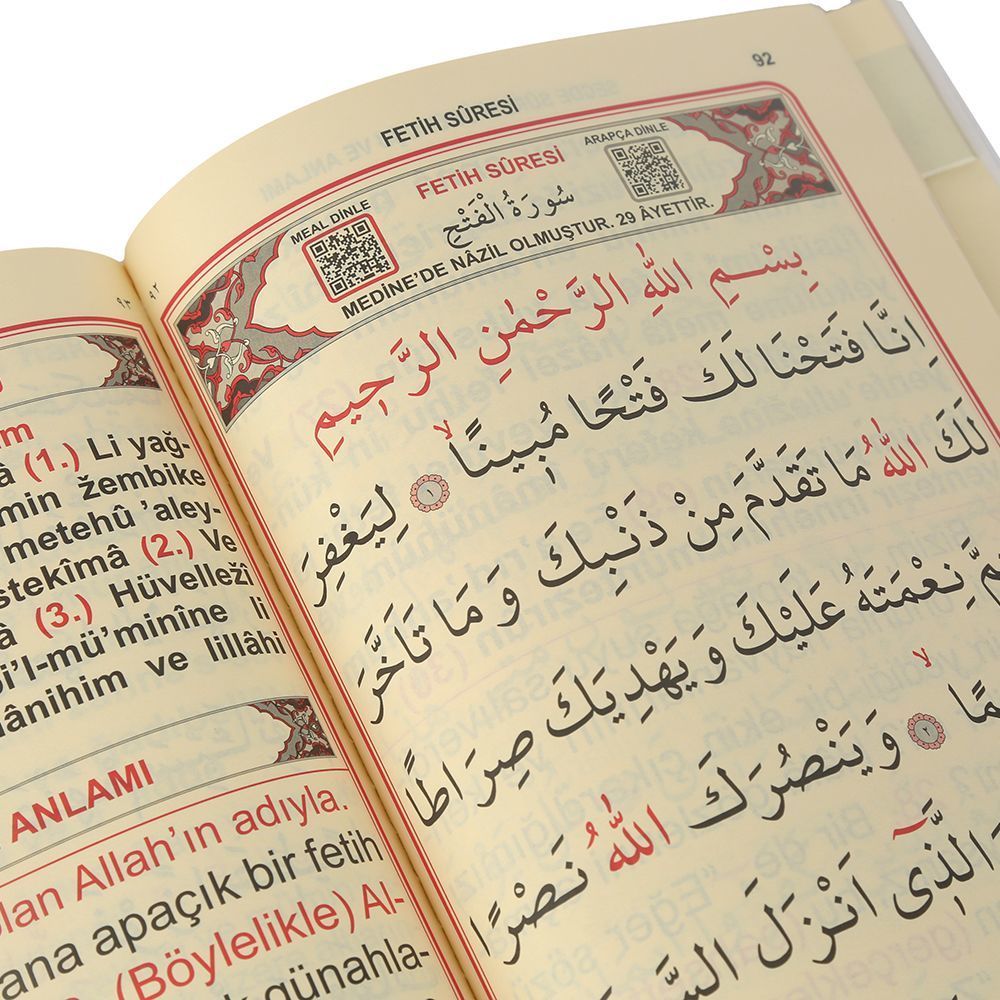 92
FETİH SÛRESİ
MEAL DİNLE
FETİH SÛRESİ
ARAPÇA DİNLE
سُورَةُ الْفَتْحِ
MEDİNE'DE NÂZİL OLMUŞTUR. 29 ÂYETTİR.
بِسْمِ اللّٰهِ الرَّحْمٰنِ الرَّحٖيمِ
اِنَّا فَتَحْنَا لَكَ فَتْحًا مُبٖينًاۙ ﴿١﴾ لِيَغْفِرَ
لَكَ اللّٰهُ مَا تَقَدَّمَ مِنْ ذَنْبِكَ وَمَا تَاَخَّرَ
نِعْمَتَهُ عَلَيْكَ وَيَهْدِيَكَ صِرَاطًا
ۙ ﴿٢﴾ وَيَنْصُرَكَ اللّٰهُ نَصْرًا
اَنْزَلَ الَّذٖٓى
(1.) Li yağ-
min žembike
metehû 'aley-
stekîmâ (2.) Ve
(3.) Hüvelležî
bi'l-mü'minîne li
mânihim ve lillâhi
ANLAMI
olan Allah'ın adıyla.
sana apaçık bir fetih
(Böylelikle) Al-
günahla-